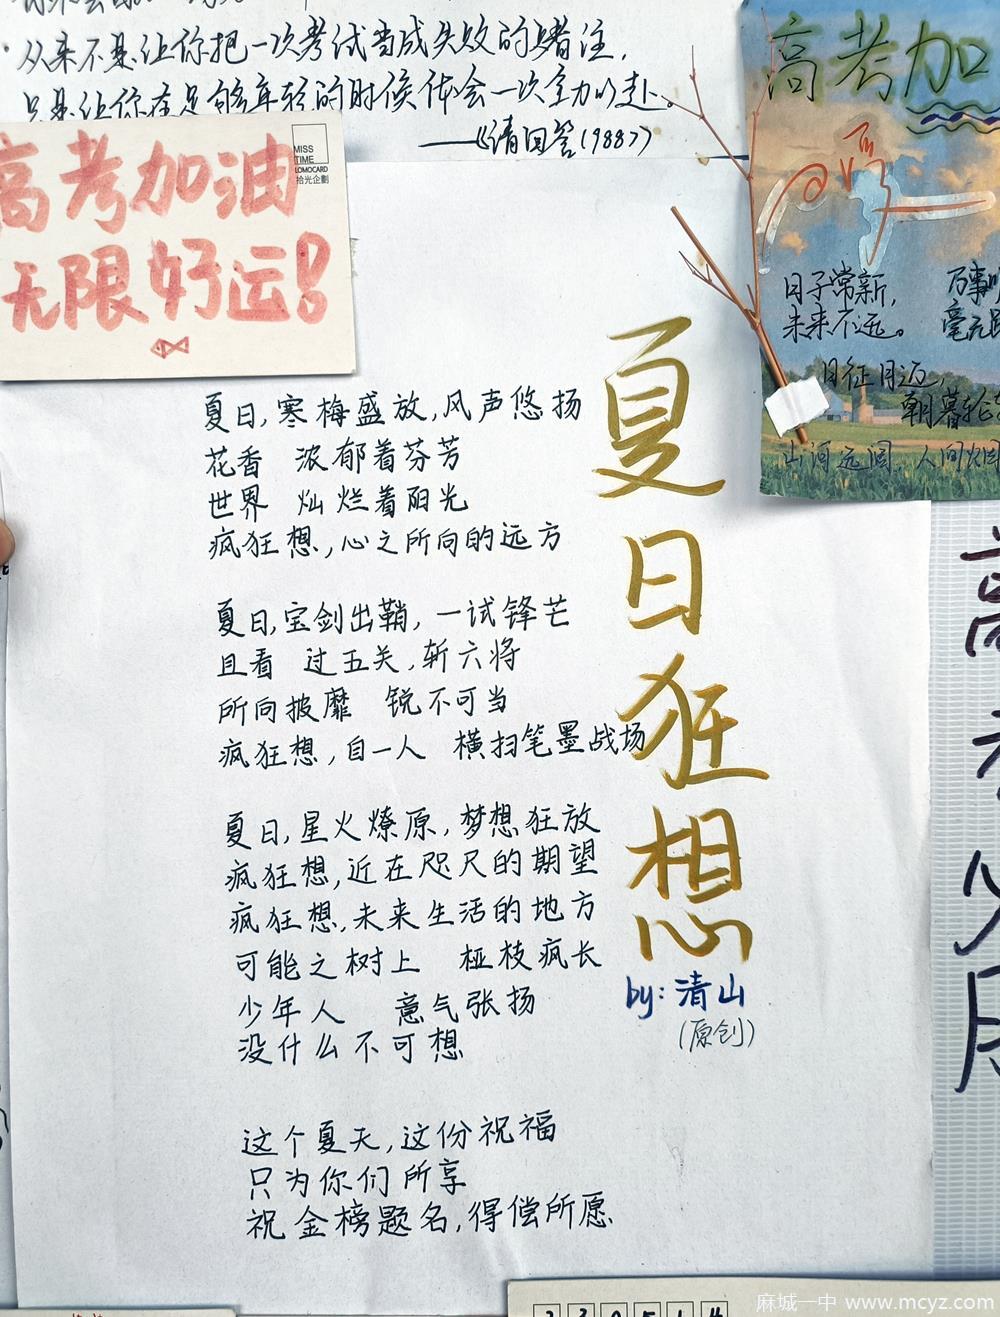 从来不是让你把一次考试当成失败的赌注,
只是让你在足够年轻的时候体会一次全力以赴。
——《请回答1988》
高考加油
无限好运!
MISS
TIME
LOMOCARD
拾光企劃
高考加
日子常新,
未来不远。
万事
毫无
日征月迈,
朝暮轮
山河远阔,人间烟
夏日狂想
by: 清山
(原创)
夏日,寒梅盛放,风声悠扬
花香 浓郁着芬芳
世界 灿烂着阳光
疯狂想,心之所向的远方
夏日,宝剑出鞘,一试锋芒
且看 过五关,斩六将
所向披靡 锐不可当
疯狂想,自一人 横扫笔墨战场
夏日,星火燎原,梦想狂放
疯狂想,近在咫尺的期望
疯狂想,未来生活的地方
可能之树上 桠枝疯长
少年人 意气张扬
没什么不可想
这个夏天,这份祝福
只为你们所享
祝金榜题名,得偿所愿
高考
麻城一中 www.mcyz.com